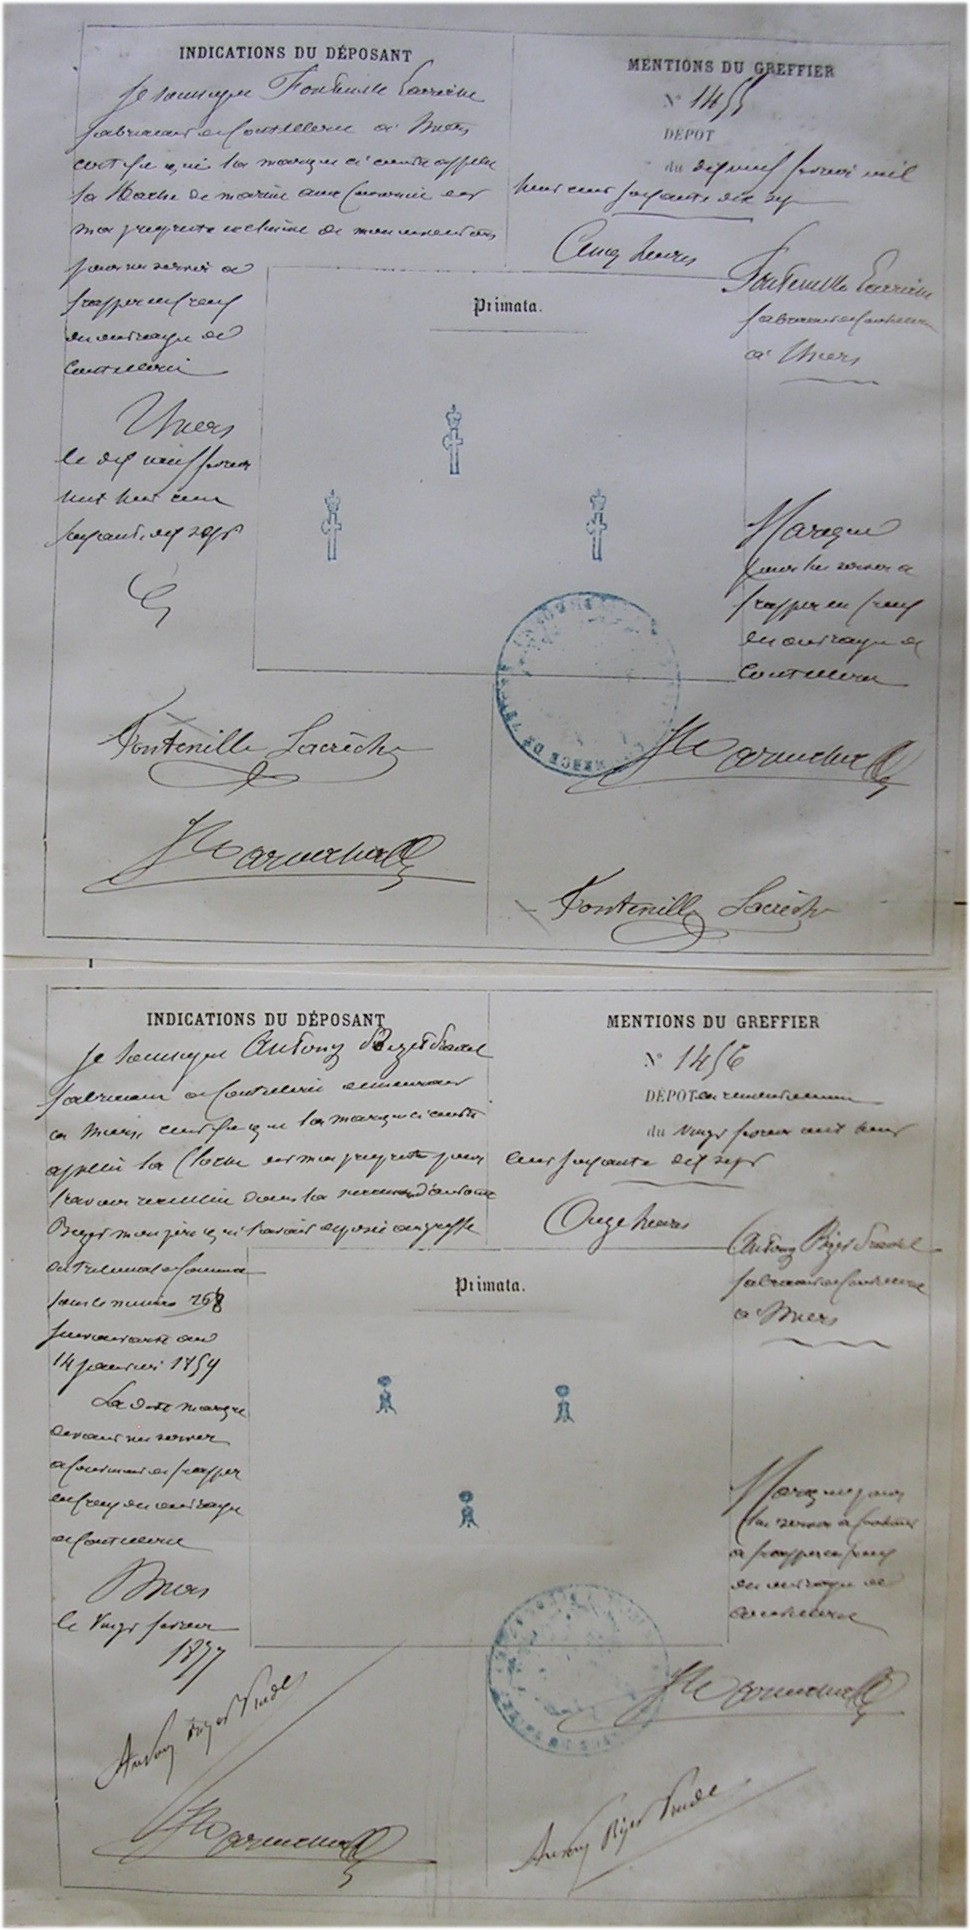 INDICATIONS DU DÉPOSANT
Je soussigné Fontenille Lacrèche
fabricant de Coutellerie à Thiers
certifie que la marque ci contre appelée
la Hache de marine aux Couronne est
ma propriété exclusive de mon invention
pour me servir à
frapper en creux
des ouvrages de
Coutellerie
Thiers
le dix neuf février
mil huit cent
soixante dix sept
Fontenille Lacrèche
MENTIONS DU GREFFIER
N° 1455
DÉPOT
du dix neuf février mil
huit cent soixante dix sept
Cinq heures
Fontenille Lacrèche
fabricant de Coutellerie
à Thiers
Primata.
Marque
pour lui servir à
frapper en creux
des ouvrages de
Coutellerie
Fontenille Lacrèche
INDICATIONS DU DÉPOSANT
Je soussigné Antony Bizet
fabricant de Coutellerie demeurant
à Thiers certifie que la marque ci contre
appelée la Cloche est ma propriété pour
l'avoir recueillie dans la
Bizet mon père qui l'avait déposée au greffe
du tribunal de Commerce
sous le numéro 268
suivant acte du
14 janvier 1859
La dite marque
devant me servir
à continuer de frapper
en creux des ouvrages
de Coutellerie
Thiers
le vingt février
1877
Antony Bizet
MENTIONS DU GREFFIER
N° 1456
DÉPOT en renouvellement
du vingt février mil huit
cent soixante dix sept
Onze heures
Antony Bizet
fabricant de Coutellerie
à Thiers
Primata.
Marque pour
lui servir à continuer
à frapper en creux
des ouvrages de
Coutellerie
Antony Bizet